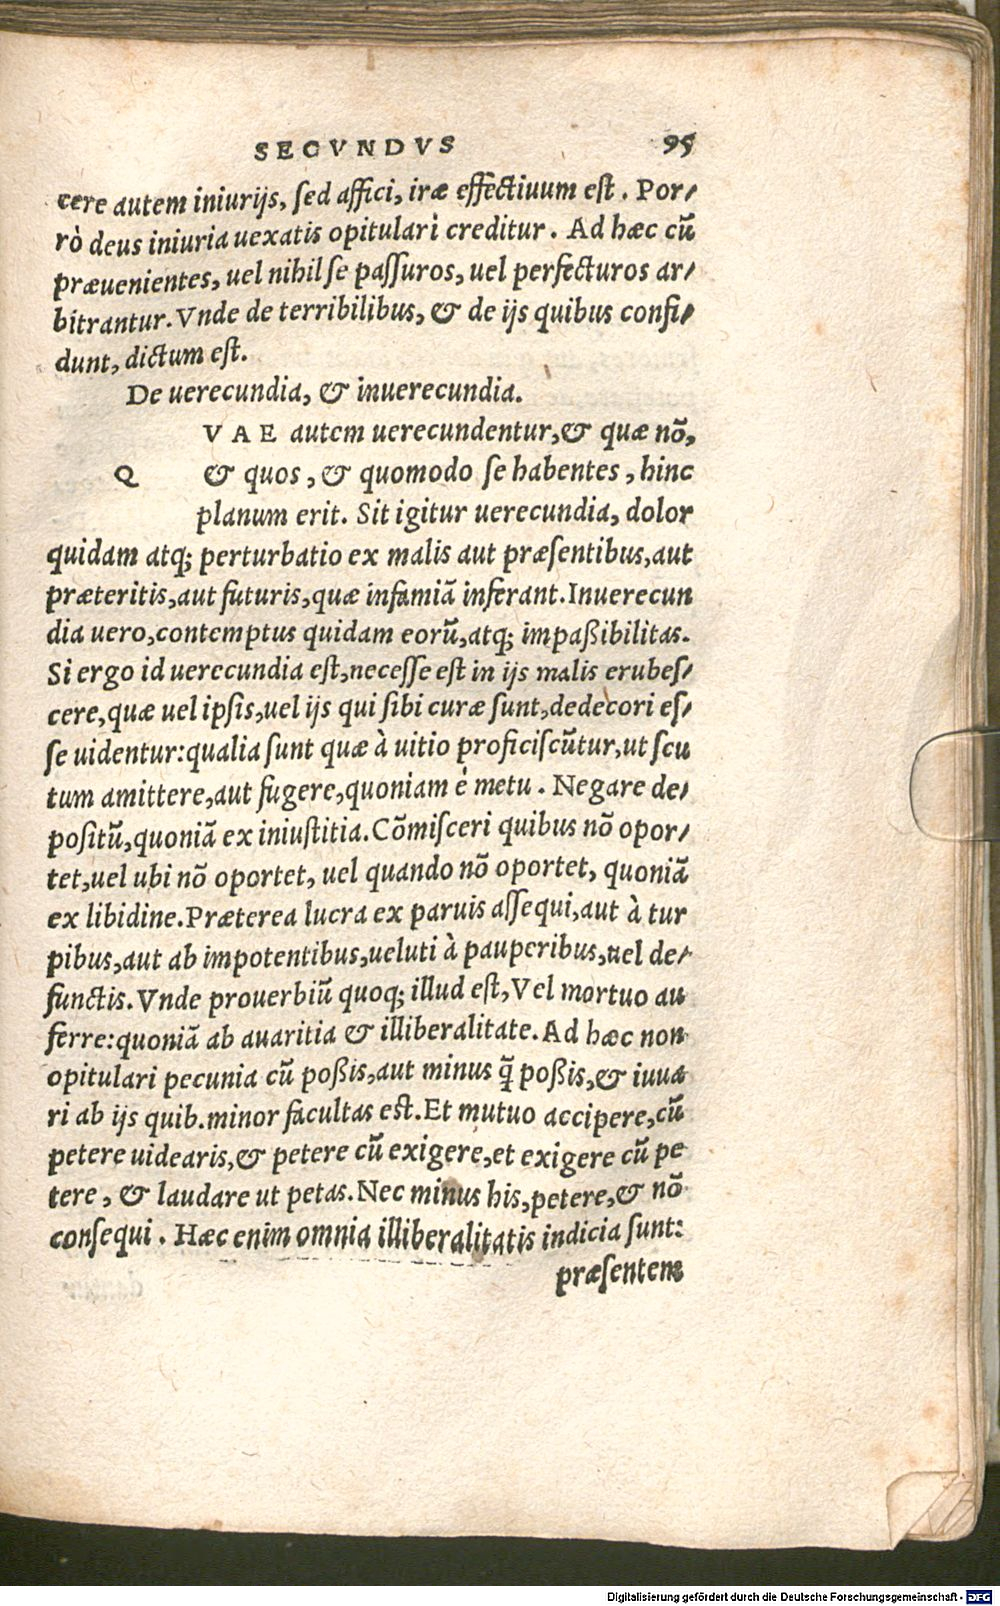 SECVNDVS 95
cere autem iniurijs, sed affici, iræ effectiuum est. Por/
rò deus iniuria uexatis opitulari creditur. Ad hæc cū
præuenientes, uel nihil se passuros, uel perfecturos ar/
bitrantur. Vnde de terribilibus, & de ijs quibus confi/
dunt, dictum est.
De uerecundia, & inuerecundia.
VAE autem uerecundentur, & quæ nō,
Q & quos, & quomodo se habentes, hinc
planum erit. Sit igitur uerecundia, dolor
quidam atq; perturbatio ex malis aut præsentibus, aut
præteritis, aut futuris, quæ infamiā inferant. Inuerecun
dia uero, contemptus quidam eorū, atq; impaßibilitas.
Si ergo id uerecundia est, necesse est in ijs malis erubes/
cere, quæ uel ipsis, uel ijs qui sibi curæ sunt, dedecori es/
se uidentur: qualia sunt quæ à uitio proficiscūtur, ut scu
tum amittere, aut fugere, quoniam è metu. Negare de/
positū, quoniā ex iniustitia. Cōmisceri quibus nō opor/
tet, uel ubi nō oportet, uel quando nō oportet, quoniā
ex libidine. Præterea lucra ex paruis assequi, aut à tur
pibus, aut ab impotentibus, ueluti à pauperibus, uel de/
functis. Vnde prouerbiū quoq; illud est, Vel mortuo au
ferre: quoniā ab auaritia & illiberalitate. Ad hæc non
opitulari pecunia cū poßis, aut minus q̄ poßis, & iuua
ri ab ijs quib. minor facultas est. Et mutuo accipere, cū
petere uidearis, & petere cū exigere, et exigere cū pe
tere, & laudare ut petas. Nec minus his, petere, & nō
consequi. Hæc enim omnia illiberalitatis indicia sunt:
præsentem
Digitalisierung gefördert durch die Deutsche Forschungsgemeinschaft - DFG